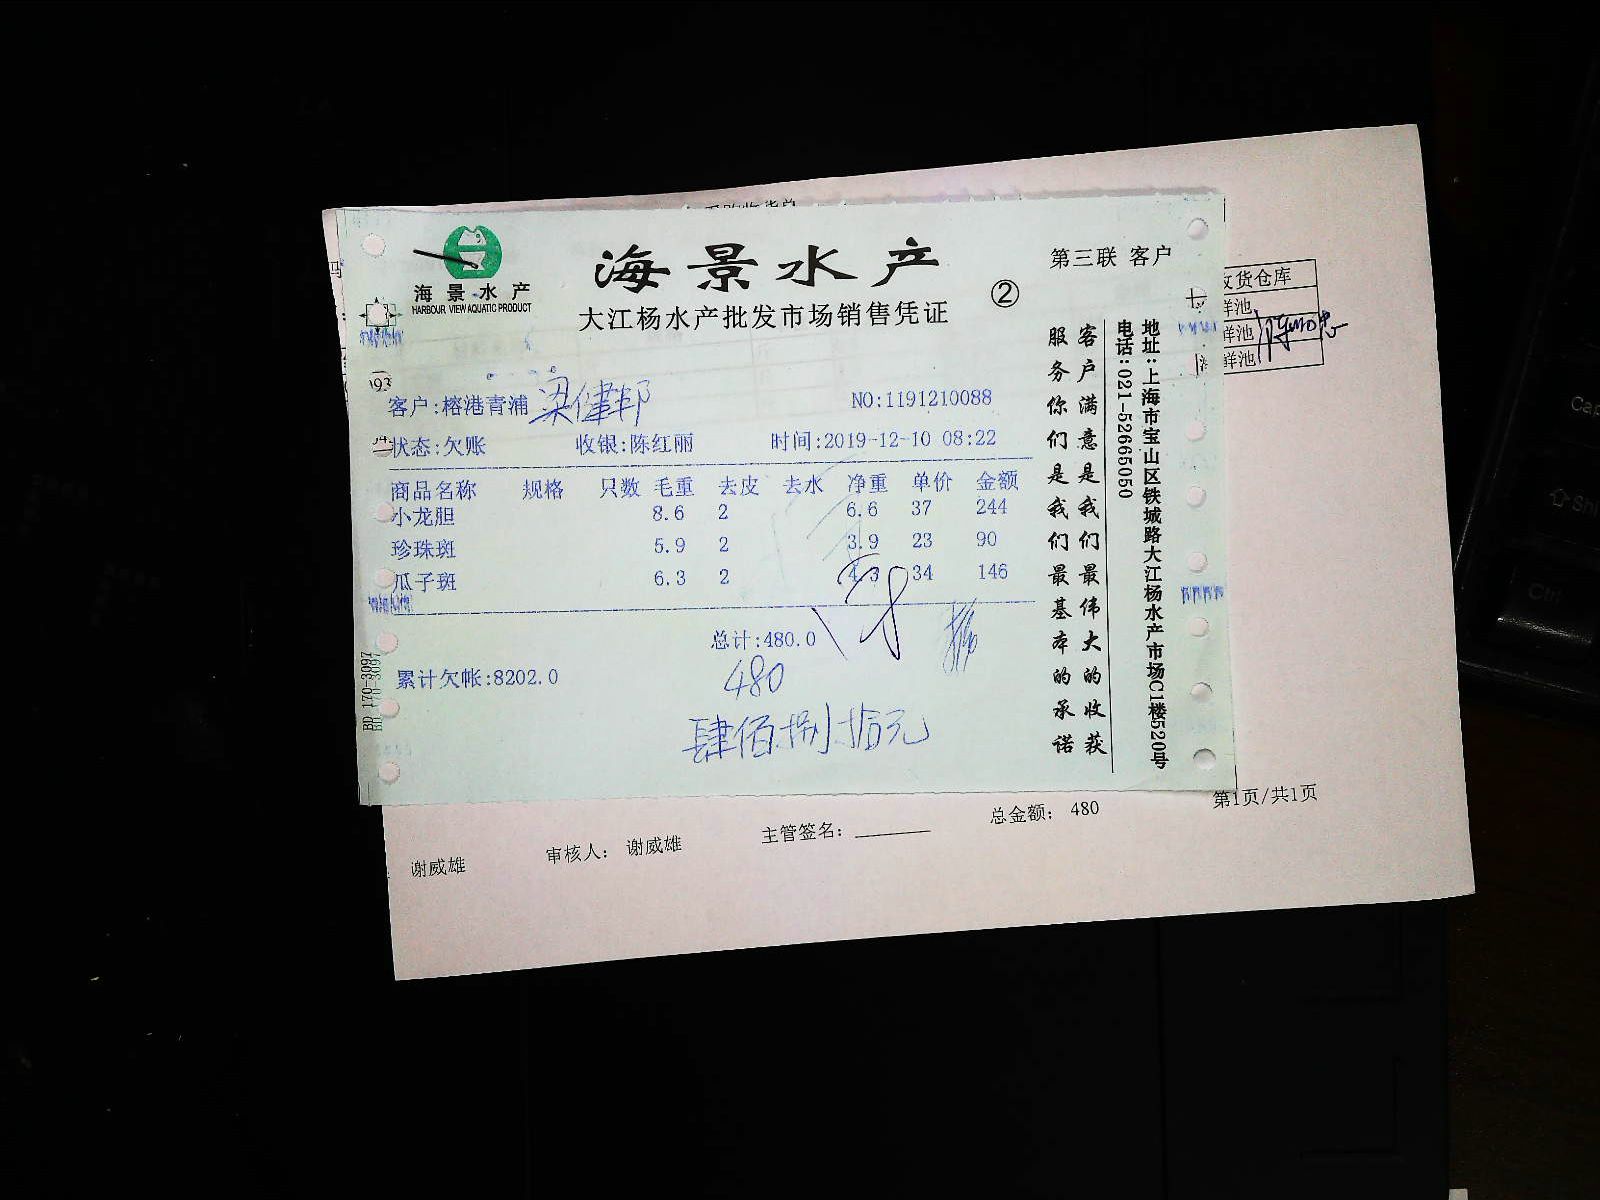 海景水产
HARBOUR VIEW AQUATIC PRODUCT
海景水产
大江杨水产批发市场销售凭证
②
第三联 客户
客户:榕港青浦 梁健邦
NO:1191210088
状态:欠账 收银:陈红丽 时间:2019-12-10 08:22
商品名称 规格 只数 毛重 去皮 去水 净重 单价 金额
小龙胆 8.6 2 6.6 37 244
珍珠斑 5.9 2 3.9 23 90
瓜子斑 6.3 2 4.3 34 146
总计:480.0
累计欠帐:8202.0
480
肆佰捌拾元
客户满意是我们最伟大的收获
服务你们是我们最基本的承诺
地址:上海市宝山区铁城路大江杨水产市场C1楼520号
电话:021-52665050
BD 170-3097
收货仓库
鲜池
鲜池
鲜池
谢威雄
审核人: 谢威雄
主管签名:
总金额: 480
第1页/共1页